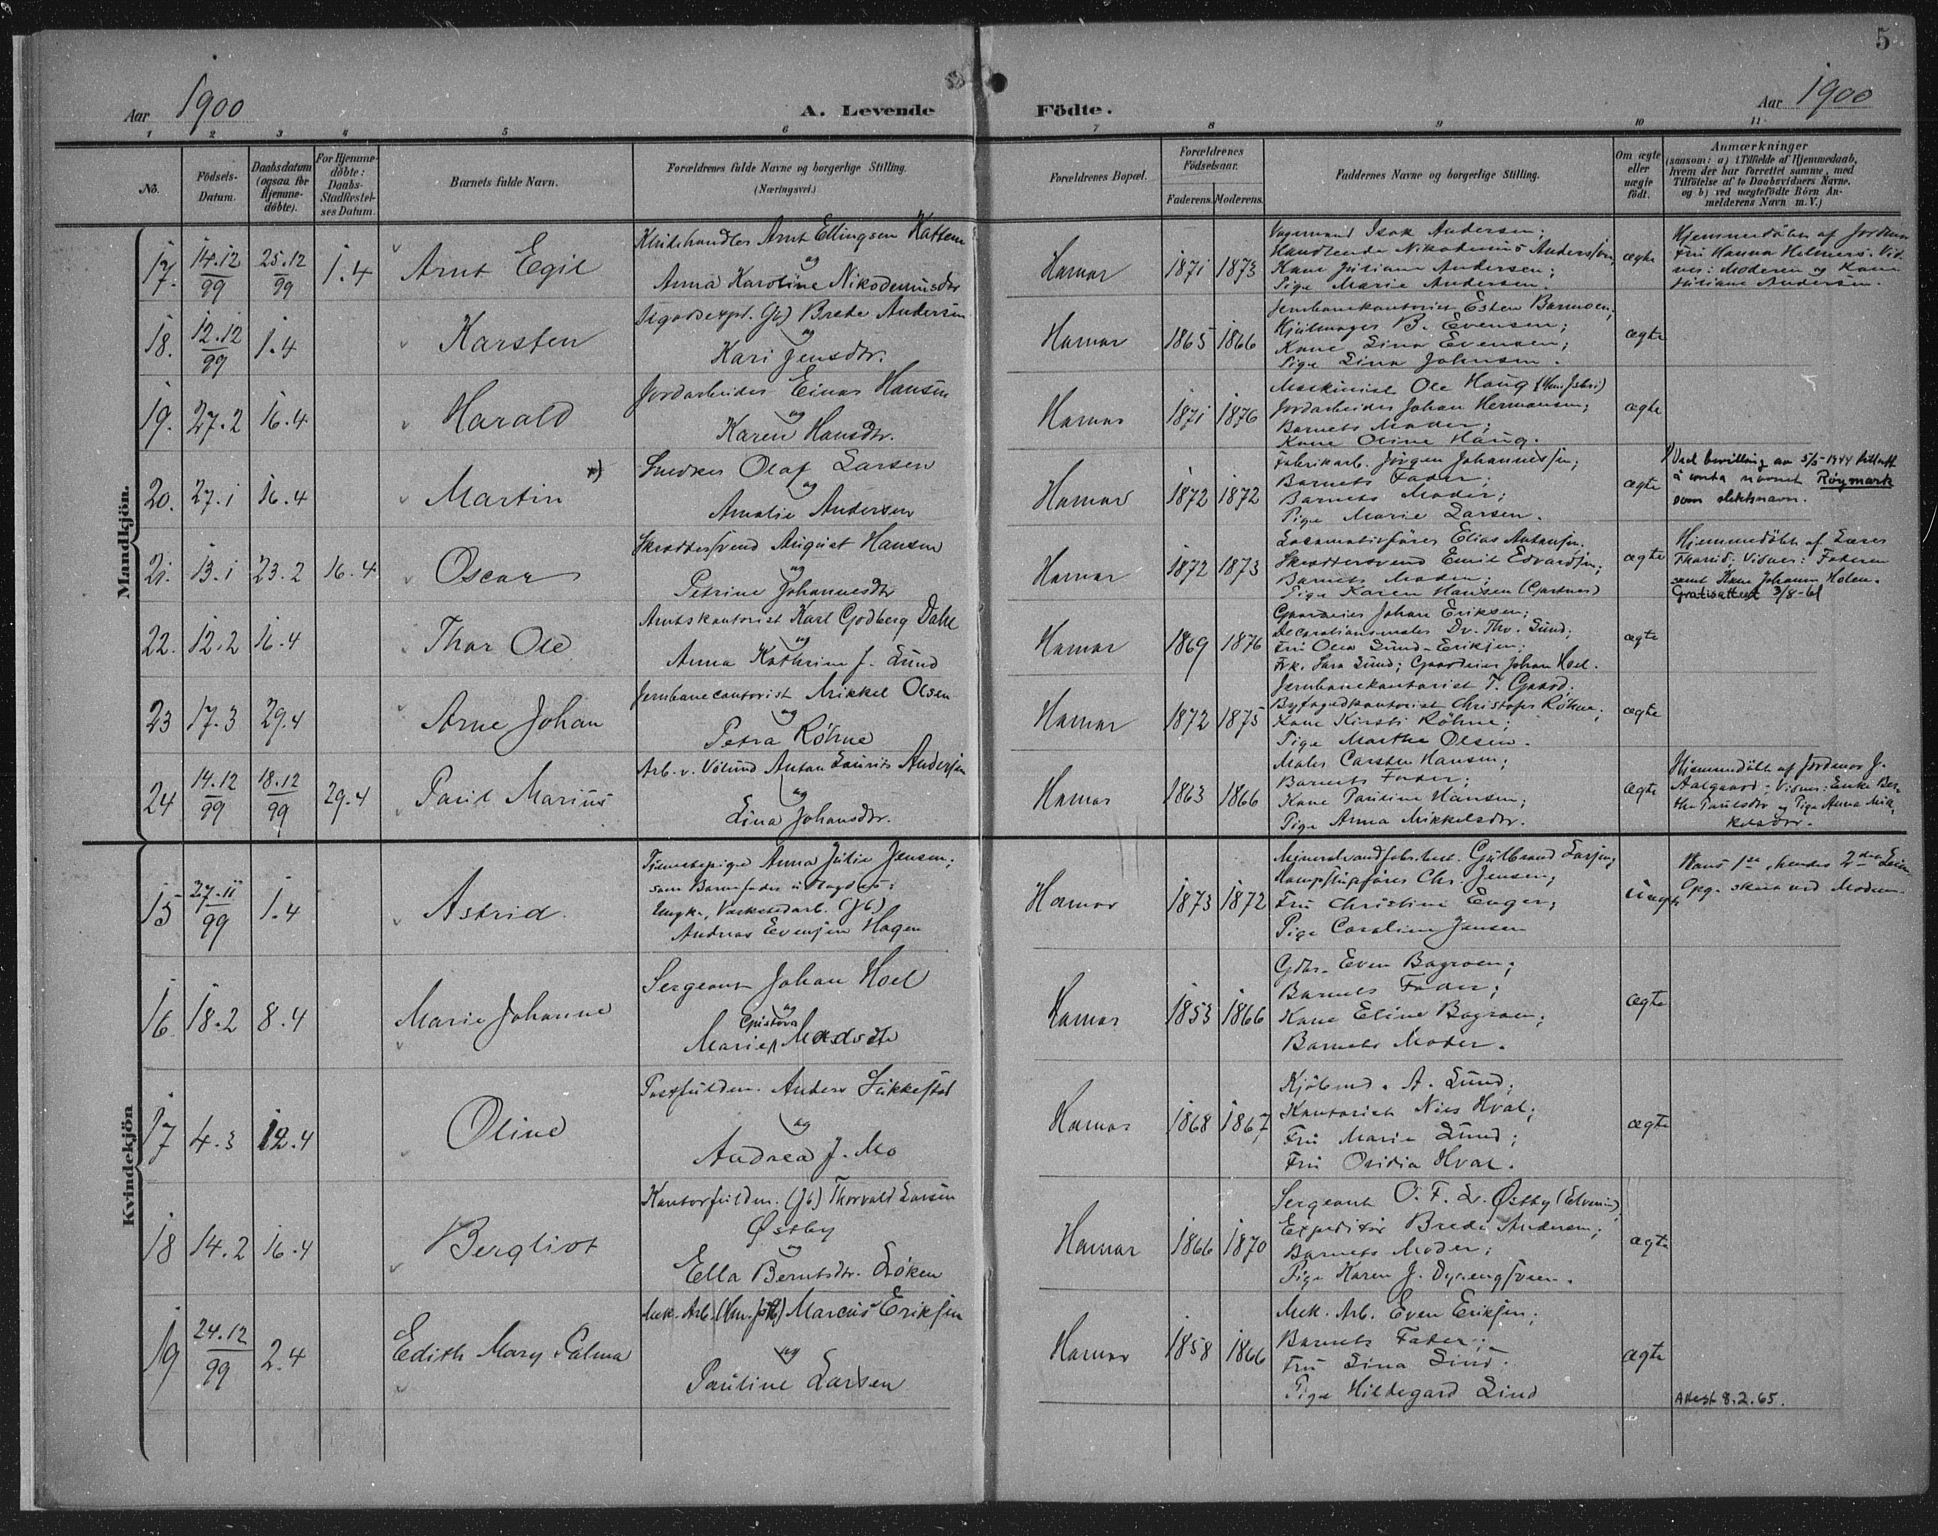 5
Aar 1900
A. Levende Födte.
Aar 1900
1 2 3 4 5 6 7 8 9 10 11
No.
Födsels-Datum.
Daabsdatum (ogsaa for Hjemme-døbte).
For Hjemme-døbte: Daabs-Stadfæstel-ses Datum.
Barnets fulde Navn.
Forældrenes fulde Navne og borgerlige Stilling. (Næringsvei.)
Forældrenes Bopæl.
Forældrenes Födselsaar.
Faderens. Moderens.
Faddernes Navne og borgerlige Stilling.
Om ægte eller uægte födt.
Anmærkninger
(saasom: a) i Tilfælde af Hjemmedaab,
hvem der har forrettet samme, med
Tilföielse af to Daabsvidners Navne,
og b) ved uægtefödte Börn An-
melderens Navn m. V.)
Mandkjön.
17. 14.12/99 25.12/99 1.4 Arnt Egil
Arnt Ellingsen Kattem
og
Anna Karoline Nikodemusdtr
Hamar 1871 1873
Isak Andersen;
Handlende Nikodemus Anderssen;
Kone Juliane Andersen;
Pige Marie Andersen.
ægte
Hjemmedöbt af Jordem.
Fru Hanna Helmers. Vid-
ner: Moderen og Kone
Juliane Andersen.
18. 12.12/99 1.4 Karsten
Brede Andersen
og
Kari Jensdtr.
Hamar 1865 1866
Jernbanekontorist Esten Barmoen;
B. Evensen;
Kone Lina Evensen;
Pige Lina Johnsen.
ægte
19. 27.2 16.4 Harald
Jordarbeider Einar Hansen
og
Karen Hansdtr.
Hamar 1871 1876
Maskinist Ole Haug
Jordarbeider Johan Hermansen;
Barnets Moder;
Kone Oline Haug.
ægte
20. 27.1 16.4 Martin
Snedker Olaf Larsen
og
Amalie Andersen
Hamar 1872 1872
Fabrikarb. Jörgen Johannessen;
Barnets Fader;
Barnets Moder;
Pige Marie Larsen.
ægte
Ved bevilling av 5/5-1944 tillatt
å anta navnet Røymark
som slektsnavn.
21. 13.1 23.2 16.4 Oscar
Skræddersvend August Hansen
og
Petrine Johannesdtr
Hamar 1872 1873
Locomotivförer Elias Antonsen.
Skræddersvend Emil Edvardsen;
Barnets Moder;
Pige Karen Hansen (Gartner)
ægte
Hjemmedöbt af Lærer
Vidner: Faderen
samt Kone Johanne Holen.
Gratisattest 3/8-61
22. 12.2 16.4 Thor Ole
Amtskontorist Karl Godberg Dahl
og
Anna Kathrine J. Lund
Hamar 1869 1876
Gaardeier Johan Eriksen;
Decorationsmaler Dr. Thv. Lund;
Fru Olea Lund-Eriksen;
Frk. Sara Lund; Gaardeier Johan Hoel.
ægte
23 17.3 29.4 Arne Johan
Jernbanecontorist Mikkel Olsen
og
Petra Röhne
Hamar 1872 1875
Jernbanekontorist T. Gaard.
Byfogedkontorist Christofer Röhne;
Kone Kirsti Röhne;
Pige Marthe Olsen.
ægte
24 14.12/99 18.12/99 29.4 Paul Marius
Arb. v. Völund Anton Laurits Andersen
og
Lina Johansdtr.
Hamar 1863 1866
Maler Carsten Hansen;
Barnets Fader;
Kone Pauline Hansen;
Pige Anna Mikkelsdtr.
ægte
Hjemmedöbt af Jordmor J.
Aalgaard; Vidner: Enke Ber-
the Paulsdtr og Pige Anna Mik-
kelsdtr.
Kvindekjön
15 27.11/99 1.4 Astrid.
Tjenestepige Anna Julie Jensen;
som Barnefader
Ungk.
Andreas Evensen Hagen
Hamar 1873 1872
Gulbrand Larsen;
Dampskipsförer Chr. Jensen;
Fru Christine Enger;
Pige Caroline Jensen
uægte
Hans 1ste, hendes 2det Leier-
16 18.2 8.4 Marie Johanne
Sergeant Johan Hoel
og
Marie Gustava Madsdtr
Hamar 1853 1866
Gdbr. Even Bagroen;
Barnets Fader;
Kone Eline Bagroen;
Barnets Moder.
ægte
17 4.3 12.4 Oline
Postfuldm. Anders Sikkestad
og
Andrea J. Mo
Hamar 1868 1867
Kjöbmd. A. Lund;
Kontorist Nils Hval;
Fru Marie Lund;
Fru Ovidia Hval.
ægte
18 14.2 16.4 Bergliot
Kontorfuldm. (Jb) Thorvald Larsen
Østby
og
Ella Berntsdtr. Löken
Hamar 1866 1870
Sergeant O. F. L. Østby (Elverum);
Expeditör Brede Andersen;
Barnets Moder;
Pige Karen J. Dyrengsveen.
ægte
19 24.12/99 2.4 Edith Mary Palma
Mek. Arb. Marcus Eriksen
og
Pauline Larsen
Hamar 1858 1866
Mek. Arb. Even Eriksen;
Barnets Fader;
Fru Lina Lind.
Pige Hildegard Lind
ægte
Attest 8.2.65.